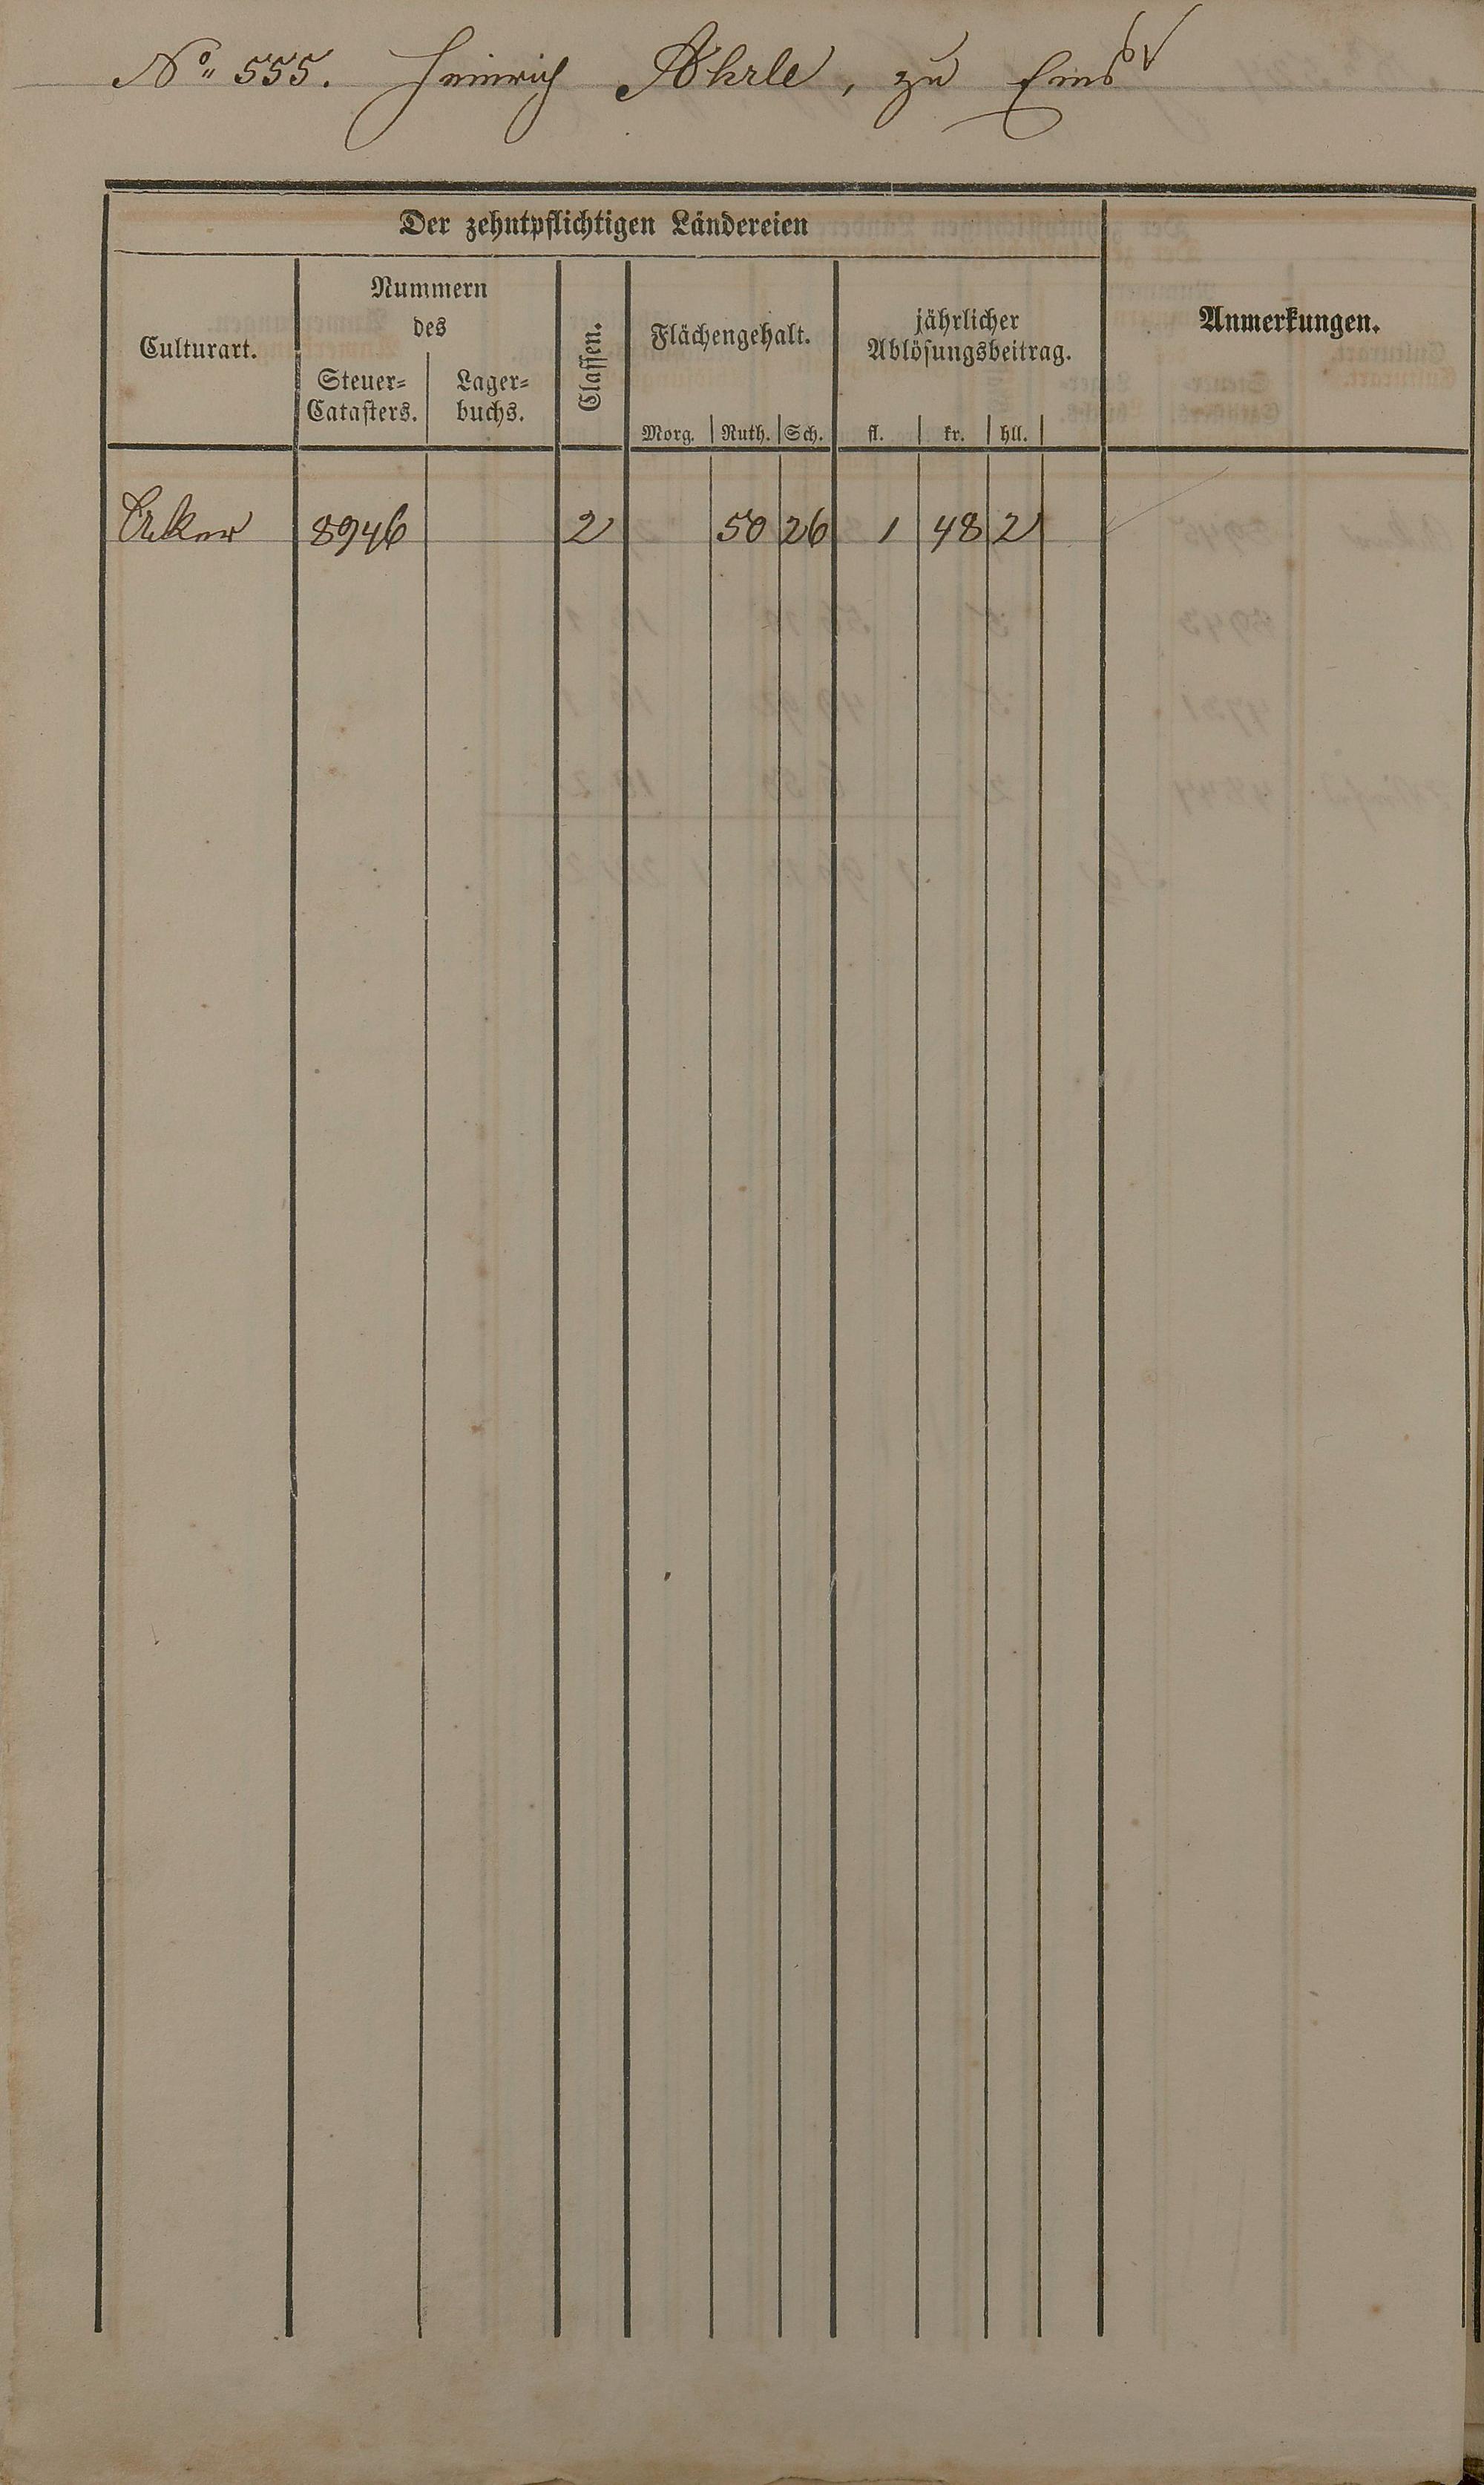 No 555. Heinrich Röhrle, zu Ems
Der zehntpflichtigen Ländereien
Culturart.
Nummern
des
Steuer=
Catasters.
Lager=
buchs.
Classen.
Flächengehalt.
Morg. Ruth. Sch.
jährlicher
Ablösungsbeitrag.
fl. kr. hll.
Anmerkungen.
Acker 8946 2 50 26 1 48 2